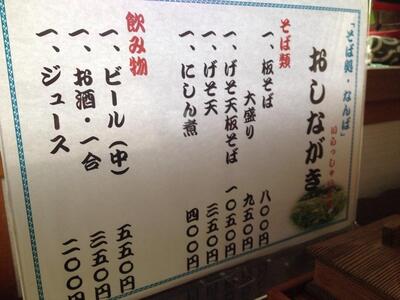 「そば処・なんば」
おしながき
いらっしゃいませ
そば類
一、板そば 八〇〇円
大盛り 九五〇円
一、げそ天板そば 一〇五〇円
一、げそ天 三五〇円
一、にしん煮 四〇〇円
飲み物
一、ビール（中） 五五〇円
一、お酒・一合 三五〇円
一、ジュース 二〇〇円